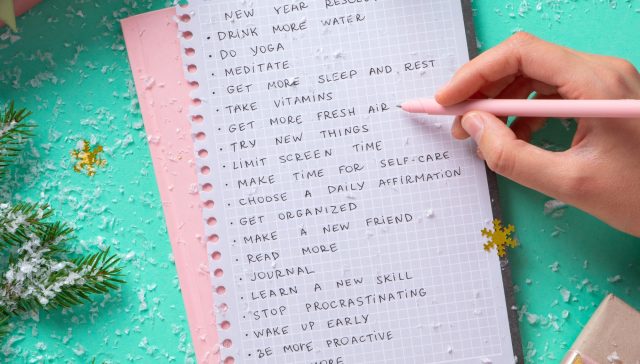 NEW YEAR
• DRINK MORE WATER
• DO YOGA
• MEDITATE
• GET MORE SLEEP AND REST
• TAKE VITAMINS
• GET MORE FRESH AIR
• TRY NEW THINGS
• LIMIT SCREEN TIME
• MAKE TIME FOR SELF-CARE
• CHOOSE A DAILY AFFIRMATION
• GET ORGANIZED
• MAKE A NEW FRIEND
• READ MORE
• JOURNAL
• LEARN A NEW SKILL
• STOP PROCRASTINATING
• WAKE UP EARLY
• BE MORE PROACTIVE
MORE